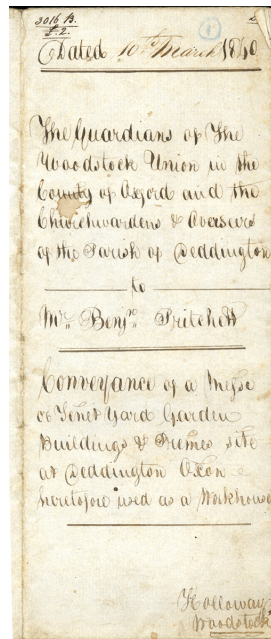 3016 B.
1
Dated 10th March 1840
The Guardians of The
Woodstock Union in the
County of Oxford and the
Churchwardens & Overseers
of the Parish of Deddington
to
Mr. Benjn. Pritchett
Conveyance of a Messe
or Tenet Yard Garden
Buildings & Premes site
at Deddington Oxon
heretofore used as a Workhouse
Holloway
Woodstock